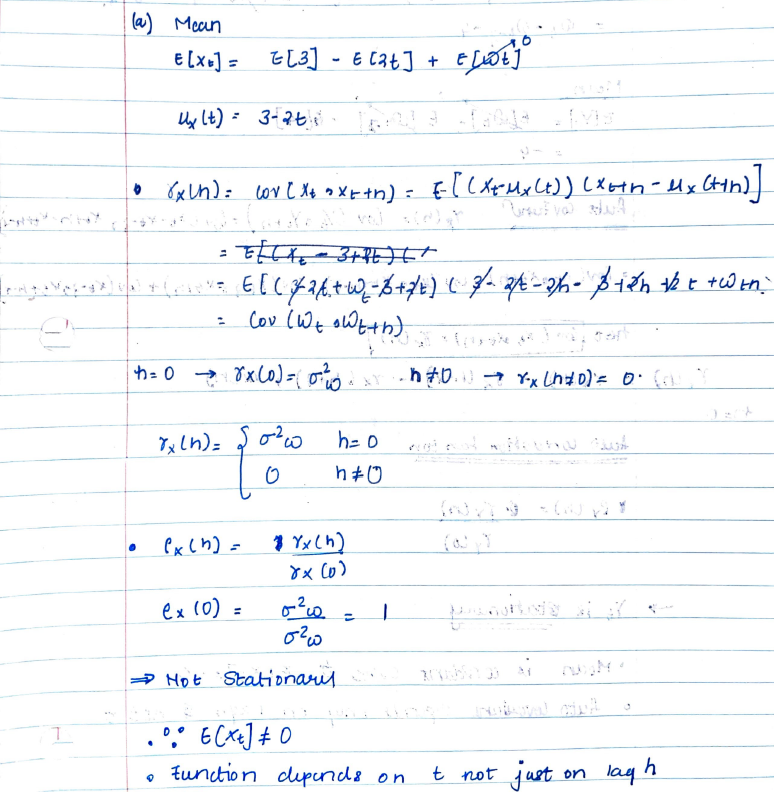 (a) Mean
E[Xt] = E[3] - E[2t] + E[ωt] 0
μx(t) = 3-2t
• γx(h) = Cov(Xt, Xt+h) = E[(Xt-μx(t)) (Xt+h - μx(t+h)]
= E[(Xt - 3+2t) (
= E[(3-2t+ωt-3+2t) (3-2t-2h-3+2h+2t+ωt+h
= Cov(ωt, ωt+h)
h=0 → γx(0) = σ²ω h≠0 → γx(h≠0) = 0.
γx(h) = { σ²ω h=0
0 h≠0
• ρx(h) = γx(h)
γx(0)
ρx(0) = σ²ω = 1
σ²ω
⇒ Not Stationary
• ∵ E(Xt] ≠ 0
• Function depends on t not just on lag h